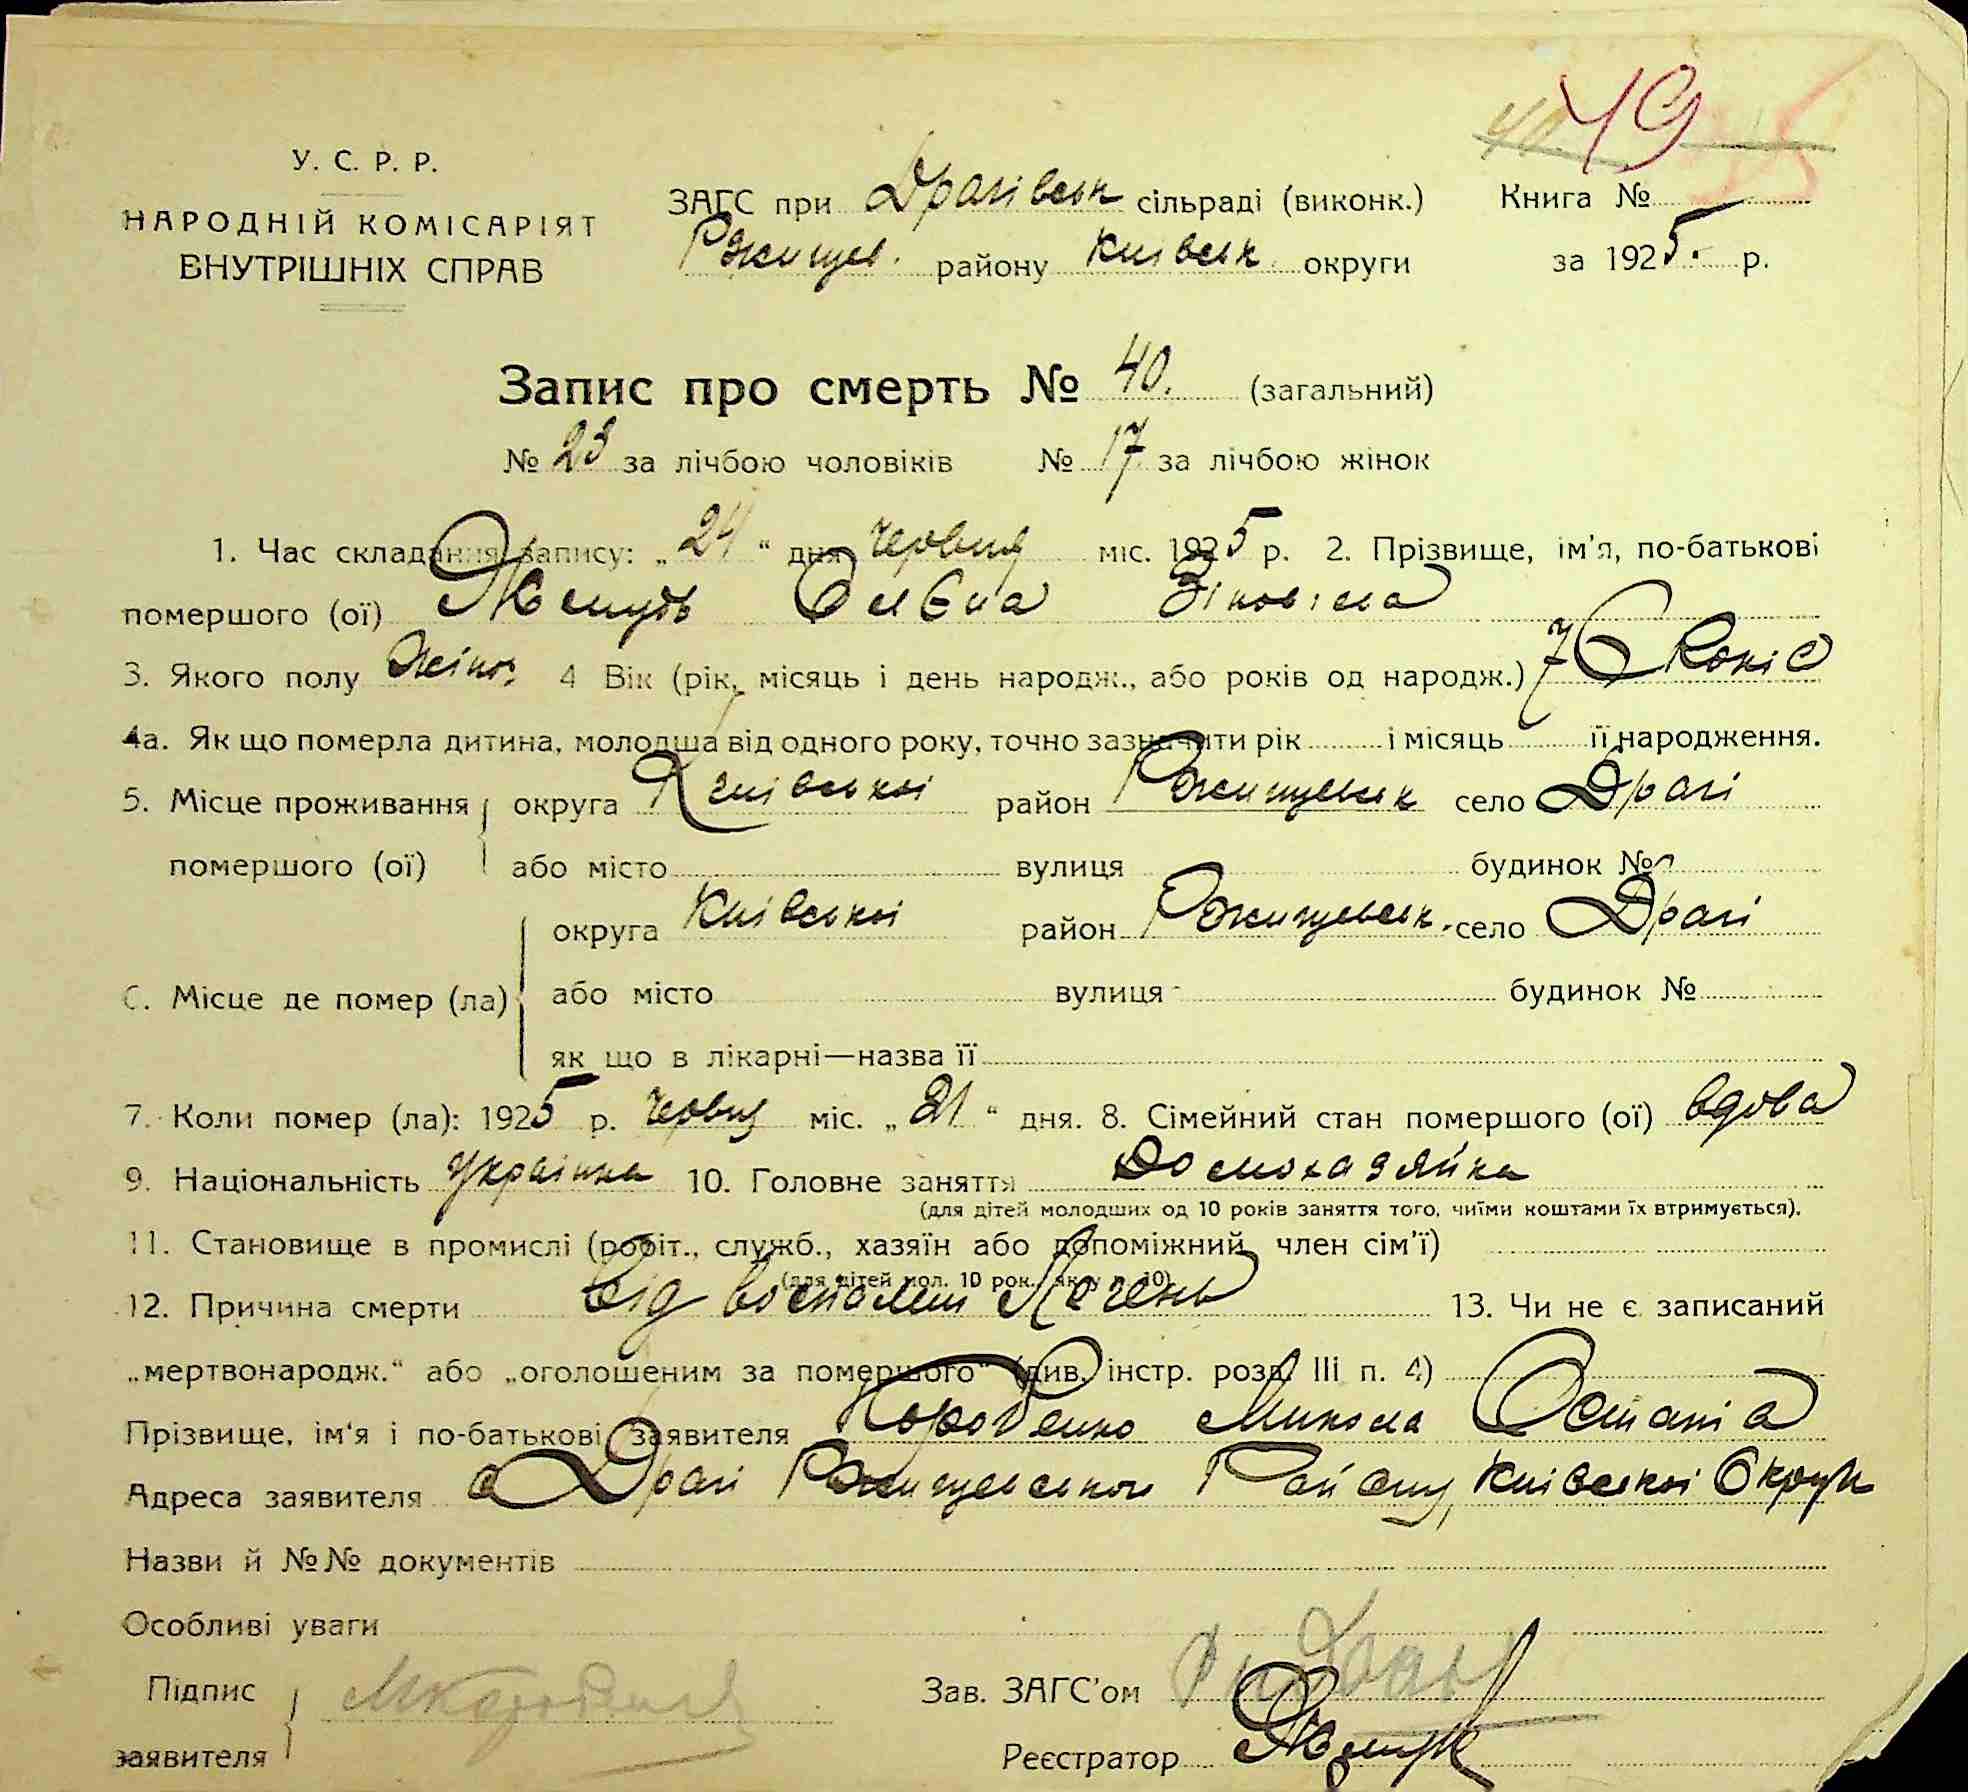 49
У. С. Р. Р.
НАРОДНІЙ КОМІСАРІЯТ
ВНУТРІШНІХ СПРАВ
ЗАГС при Драгівськ сільраді (виконк.) Книга №
Ржищев. району Київськ округи за 1925. р.
Запис про смерть № 40. (загальний)
№ 23 за лічбою чоловіків № 17 за лічбою жінок
1. Час складання запису: „24“ дня червня міс. 1925 р. 2. Прізвище, ім'я, по-батькові
помершого (ої) Олєна Зіновієва
3. Якого полу Жіноч. 4 Вік (рік, місяць і день народж., або років од народж.) 70 Років
4а. Як що померла дитина, молодша від одного року, точно зазначити рік і місяць її народження.
5. Місце проживання округа Київської район Ржищевськ село Драгі
помершого (ої) або місто вулиця будинок №
округа Київської район Ржищевськ. село Драгі
6. Місце де помер (ла) або місто вулиця будинок №
як що в лікарні—назва її
7. Коли помер (ла): 1925 р. червня міс. „21“ дня. 8. Сімейний стан помершого (ої) вдова
9. Національність Українка 10. Головне заняття Домохазяйка
(для дітей молодших од 10 років заняття того, чиїми коштами їх втримується).
11. Становище в промислі (робіт., служб., хазяїн або допоміжний член сім'ї)
(для дітей мол. 10 рок., як у п. 10)
12. Причина смерти Від воспалєнія Печень 13. Чи не є записаний
„мертвонародж.“ або „оголошеним за помершого“ (див. інстр. розд. III п. 4)
Прізвище, ім'я і по-батькові заявителя Коробенко Микола Остапів
Адреса заявителя с Драгі Ржищевського Району, Київської Округи
Назви й №№ документів
Особливі уваги
Підпис Зав. ЗАГС'ом
заявителя Реєстратор